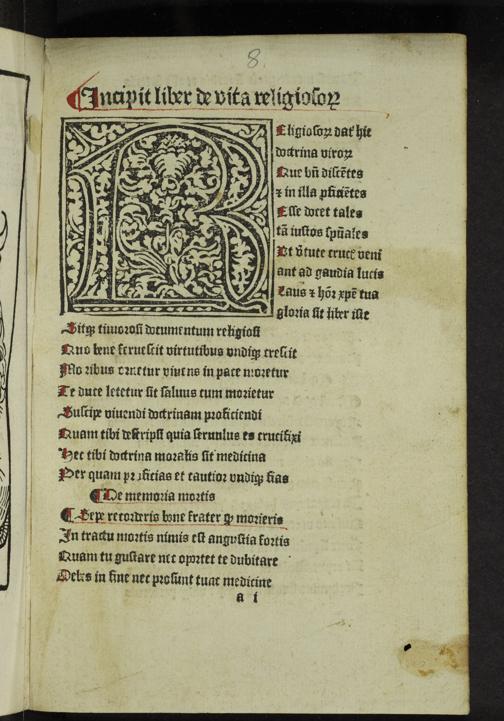 8.
Incipit liber de vita religiosoꝝ
REligiosoꝝ dat᷑ hic
doctrina viroꝝ
Que bn̄ discētes
⁊ in illa ꝓficiētes
Esse docet tales
tā iustos spūales
Et v̄tute cruc̄ veni
ant ad gaudia lucis
Laus ⁊ hōr xp̄e tua
gloria sit liber iste
Sitqꝫ timorosi documentum religiosi
Quo bene feruescit virtutibus vndiqꝫ crescit
Mo ribus ornetur viuens in pace moretur
Te duce letetur sit saluus cum morietur
Suscipe viuendi doctrinam proficiendi
Quam tibi descripsi quia seruulus es crucifixi
Hec tibi doctrina moralis sit medicina
Per quam proficias et cautior vndiqꝫ fias
De memoria mortis
Sepe recorderis bone frater ꝙ morieris
In tractu mortis nimis est angustia fortis
Quam tu gustare nec oportet te dubitare
Debes in fine nec prosunt tunc medicine
a i